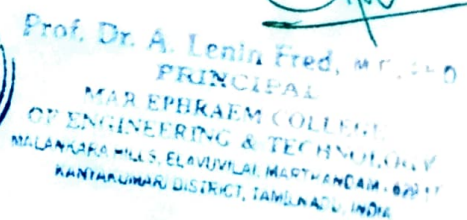 Prof. Dr. A. Lenin Fred,
PRINCIPAL
MAR EPHRAEM COLLEGE
OF ENGINEERING & TECHNOLOGY
MALANKARA HILLS, ELAVUVILAI, MARTHANDAM -
KANYAKUMARI DISTRICT, TAMILNADU, INDIA